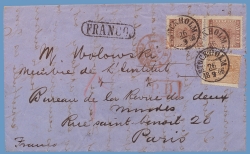 FRANCO.
STOCKHOLM
STOCKHOLM
26
18 9 66
M Wolowski
Membre de l'Institut
Bureau de la Revue des deux
mondes
Rue saint-benoit 26
Paris
France